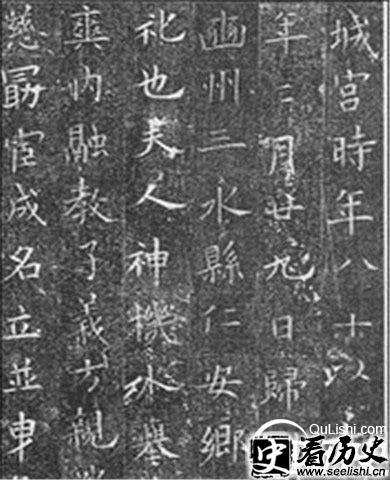 城宮時年八十
年三月廿九日歸
豳州三水縣仁安鄉
礼也夫人神機外
爽内融教子義方親
慈勗宦成名立並車
QuLishi.com
史看历史
www.seelishi.cn